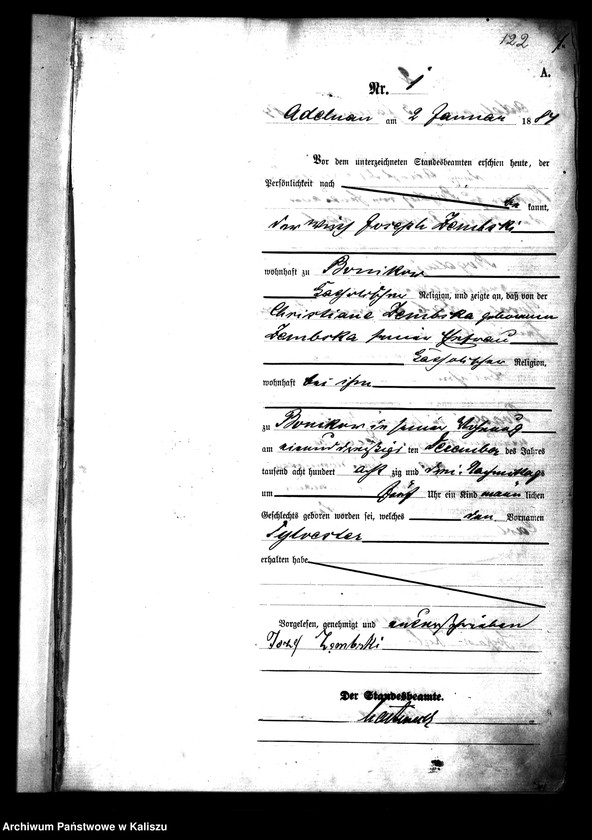 122 1.
A.
Nr. 1
Adelnau am 2 Januar 1884
Vor dem unterzeichneten Standesbeamten erschien heute, der
Persönlichkeit nach
be kannt,
der Wirth Joseph Zembski
wohnhaft zu Bonikow
katholischer Religion, und zeigte an, daß von der
Christiana Zembska geborenen
Zembska seiner Ehefrau
katholischer Religion,
wohnhaft bei ihm
zu Bonikow in seiner Wohnung
am einunddreißigsten December des Jahres
tausend acht hundert acht zig und drei Nachmittags
um fünf Uhr ein Kind männ lichen
Geschlechts geboren worden sei, welches den Vornamen
Sylvester
erhalten habe.
Vorgelesen, genehmigt und unterschrieben
Zembski
Der Standesbeamte.
Archiwum Państwowe w Kaliszu